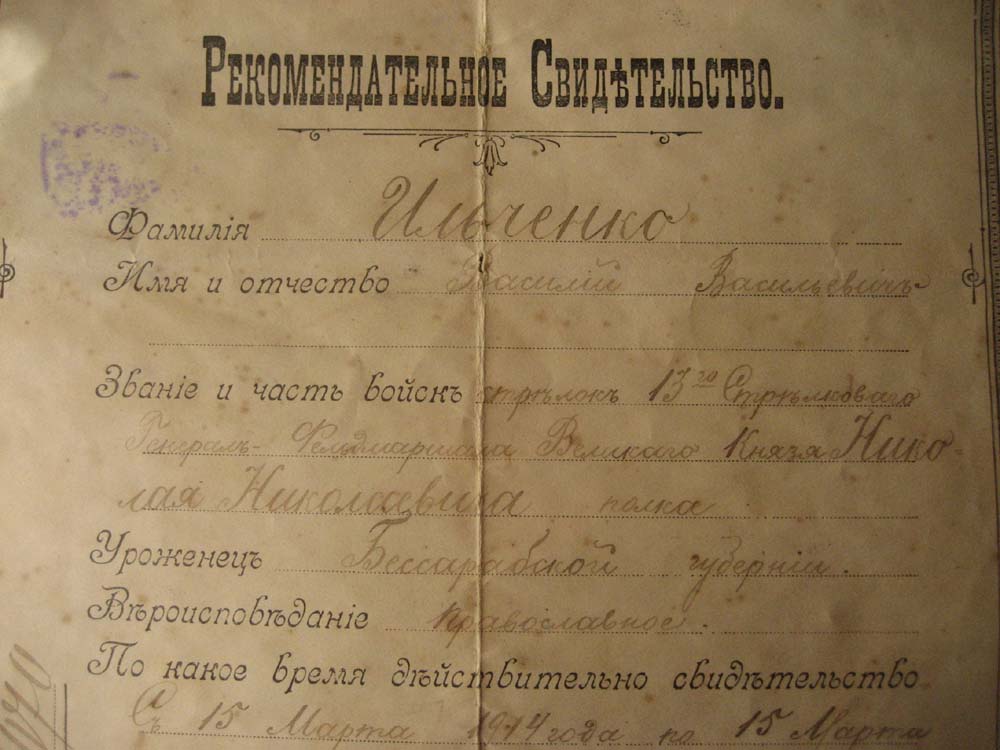 Рекомендательное Свидѣтельство.
Фамилія Ильченко
Имя и отчество Василій Васильевичъ
Званіе и часть войскъ стрѣлокъ 13го Стрѣлковаго
Генералъ-Фельдмаршала Великаго Князя Нико-
лая Николаевича полка
Уроженецъ Бессарабской губерніи.
Вѣроисповѣданіе православное.
По какое время дѣйствительно свидѣтельство
Съ 15 Марта 1914 года по 15 Марта